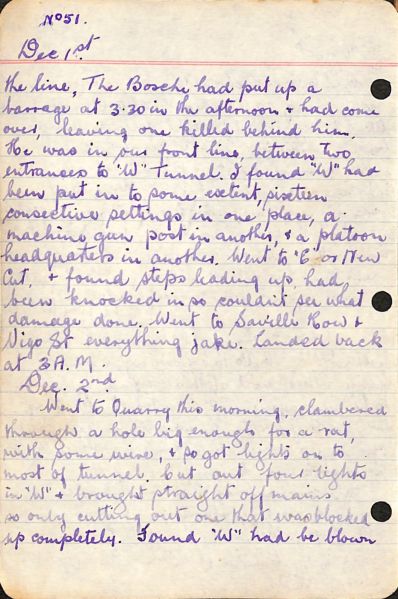 No 51.
Dec 1st.
the line, The Bosche had put up a
barrage at 3.30 in the afternoon & had come
over, leaving one killed behind him.
He was in our front line, between two
entrances to "W" Tunnel. I found "W" had
been put in to some extent, sixteen
consective settings in one place, a
machine gun post in another, & a platoon
headquarters in another. Went to "E" or New
Cut, & found steps leading up, had
been knocked in so couldn't see what
damage done. Went to Saville Row &
Vigo St everything jake. Landed back
at 3 A.M.
Dec. 2nd.
Went to Quarry this morning, clambered
through a hole big enough for a rat,
with some wire, & so got lights on to
most of tunnel. Cut out four lights
in "W" & brought straight off mains
so only cutting out one that was blocked
up completely. Found "W" had be blown